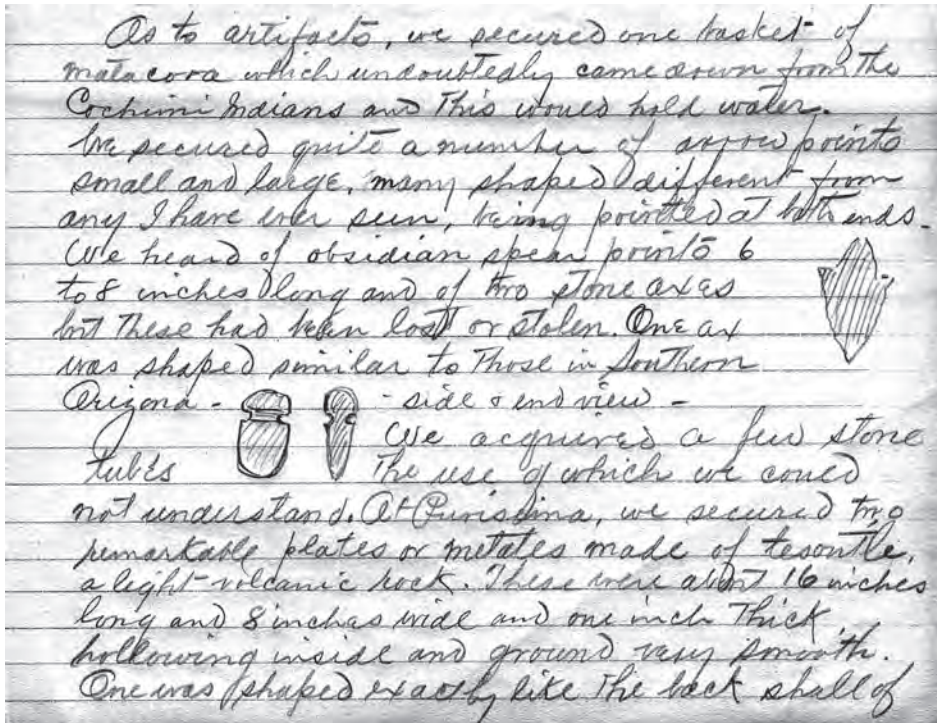 As to artifacts, we secured one basket of
matacora which undoubtedly came down from the
Cochimi Indians and this would hold water.
We secured quite a number of arrow points
small and large, many shaped different from
any I have ever seen, being pointed at both ends.
We heard of obsidian spear points 6
to 8 inches long and of two stone axes
but these had been lost or stolen. One ax
was shaped similar to those in Southern
Arizona - - side & end view -
We acquired a few stone
tubes the use of which we could
not understand. At Purissima, we secured two
remarkable plates or metates made of tesontle,
a light volcanic rock. These were about 16 inches
long and 8 inches wide and one inch thick,
hollowing inside and ground very smooth.
One was shaped exactly like the back shall of